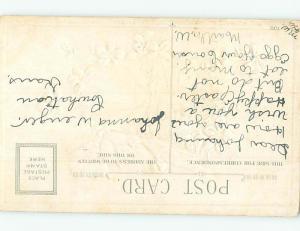 POST CARD.
THIS SIDE FOR CORRESPONDENCE
THE ADDRESS TO BE WRITTEN
ON THIS SIDE.
PLACE
POSTAGE
STAMP
HERE
Dear Johanna
How are you
I wish you a
Happy Easter.
But do not
eat to many
Eggs Your Cousin
Johanna Wenger
Powhattan
Kans.